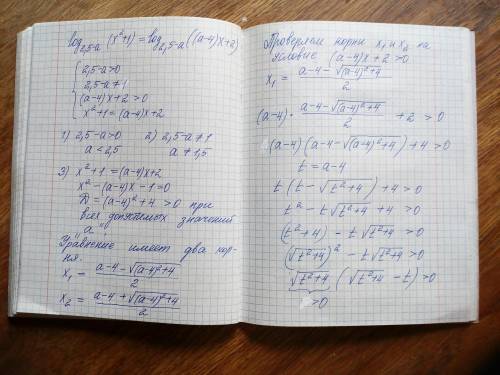 log₂,₅₋ₐ (x²+1) = log₂,₅₋ₐ ((a-4)x+2)
{ 2,5-a>0
2,5-a≠1
(a-4)x+2>0
x²+1=(a-4)x+2
1) 2,5-a>0 2) 2,5-a≠1
a<2,5 a≠1,5
3) x²+1=(a-4)x+2
x²-(a-4)x-1=0
D=(a-4)²+4 >0 при
всех допустимых значений
"a"
Уравнение имеет два кор-
ня.
x₁ = (a-4-√((a-4)²+4))/2
x₂ = (a-4+√((a-4)²+4))/2
Проверяем корни x₁ и x₂ на
условие (a-4)x+2>0
x₁ = (a-4-√((a-4)²+4))/2
(a-4)·(a-4-√((a-4)²+4))/2 +2 >0
(a-4)(a-4-√((a-4)²+4))+4>0
t=a-4
t(t-√(t²+4))+4>0
t²-t√(t²+4)+4>0
(t²+4)-t√(t²+4)>0
(√(t²+4))²-t√(t²+4)>0
√(t²+4)(√(t²+4)-t)>0
>0